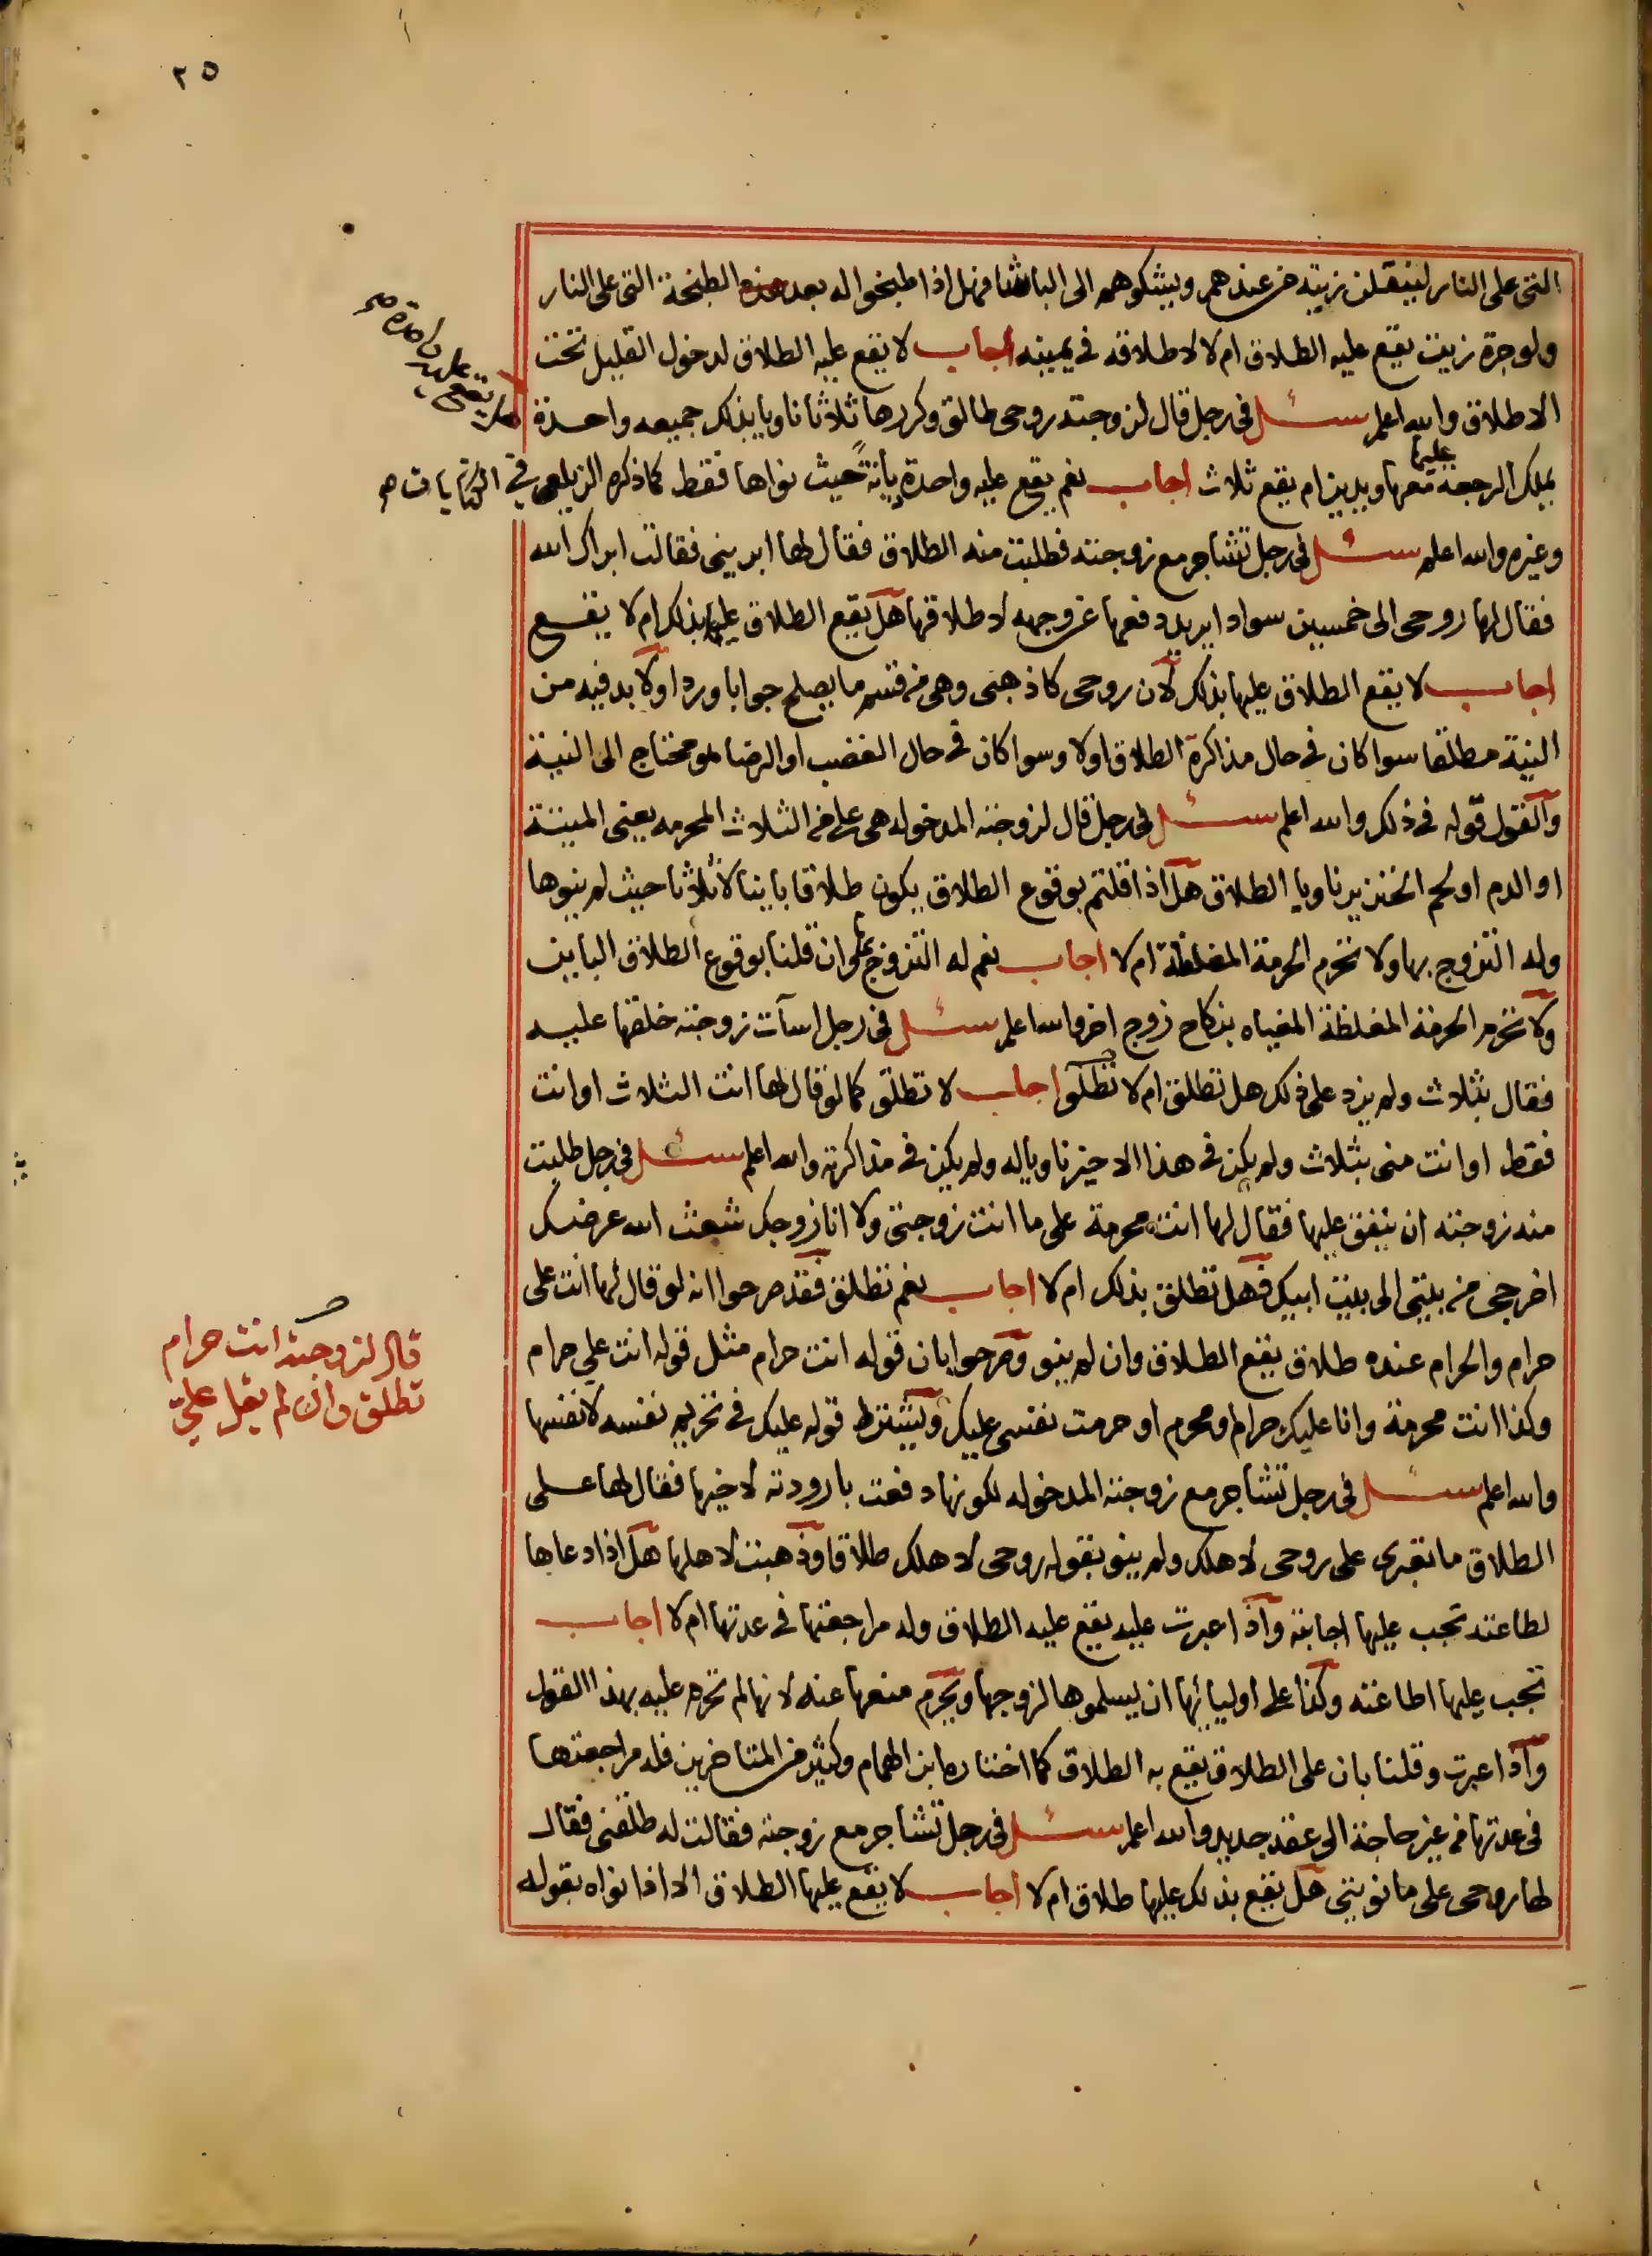 ٢٥
التى على النار لينقلن زيته من عندهم ويشكوهم الى الباشا فهل اذا طبخوا له بعد هذه الطبخة التى على النار
ولو جرة زيت يقع عليه الطلاق ام لا لاطلاقه فى يمينه اجاب لا يقع عليه الطلاق لدخول القليل تحت
الاطلاق والله اعلم سئل فى رجل قال لزوجته روحى طالق وكررها ثلاثا ناويا بذلك جميعه واحدة
هل يقع عليه واحدة صح
يملك الرجعة عليها معها ويدين ام يقع ثلاث اجاب نعم يقع عليه واحدة باينة حيث نواها فقط كما ذكره الزيلعى فى الكنايات صح
وغيره والله اعلم سئل فى رجل تشاجر مع زوجته فطلبت منه الطلاق فقال لها ابرينى فقالت ابراك الله
فقال لها روحى الى خمسين سواد ايريد دفعها عن وجهه لا طلاقها هل يقع الطلاق عليها بذلك ام لا يقع
اجاب لا يقع الطلاق عليها بذلك لان روحى كاذهبى وهى من قسم ما يصلح جوابا وردا ولا بد فيه من
النية مطلقا سوا كان فى حال مذاكرة الطلاق اولا وسوا كان فى حال الغضب او الرضا هو محتاج الى النية
والقول قوله فى ذلك والله اعلم سئل فى رجل قال لزوجته المدخوله هى على من الثلاث المحرمه يعنى الميتة
او الدم او لحم الخنزير ناويا الطلاق هل اذا قلتم بوقوع الطلاق يكون طلاقا باينا لا ثلاثا حيث لم ينوها
وله التزوج بها ولا تحرم الحرمة المغلظة ام لا اجاب نعم له التزوج بها وان قلنا بوقوع الطلاق الباين
ولا تحرم الحرمة المغلظة المغياه بنكاح زوج اخر والله اعلم سئل فى رجل اسآت زوجته خلقها عليه
فقال بثلاث ولم يزد على ذلك هل تطلق ام لا تطلق اجاب لا تطلق كما لو قال لها انت الثلاث او انت
فقط او انت منى بثلاث ولم يكن فى هذا الاخير ناويا له ولم يكن فى مذاكرته والله اعلم سئل فى رجل طلبت
منه زوجته ان ينفق عليها فقال لها انت محرمة على ما انت زوجتى ولا انا زوجك شعث الله عرضك
اخرجى من بيتى الى بيت ابيك فهل تطلق بذلك ام لا اجاب نعم تطلق فقد صرحوا انه لو قال لها انت على
حرام والحرام عنده طلاق يقع الطلاق وان لم ينو وصرحوا بان قوله انت حرام مثل قوله انت على حرام
وكذا انت محرمة وانا عليك حرام او محرم او حرمت نفسى عليك ويشترط قوله عليك فى تحريم نفسه لا نفسها
صح
قال لزوجته انت حرام
تطلق وان لم يقل علىّ
والله اعلم سئل فى رجل تشاجر مع زوجته المدخوله لكونها دفعت بارودته لاخيها فقال لها على
الطلاق ما تعبرى على روحى لاهلك ولم ينو بقوله روحى لاهلك طلاقا وذهبت لاهلها هل اذا دعاها
لطاعته تجب عليها اجابته واذا عبرت عليه يقع عليه الطلاق وله مراجعتها فى عدتها ام لا اجاب
تجب عليها اطاعته وكذا على اوليائها ان يسلموها لزوجها ويحرم منعها عنه لانها لم تحرم عليه بهذا القول
واذا عبرت وقلنا بان على الطلاق يقع به الطلاق كما اختاره ابن الهمام وكثير من المتاخرين فله مراجعتها
فى عدتها من غير حاجة الى عقد جديد والله اعلم سئل فى رجل تشاجر مع زوجته فقالت له طلقنى فقال
لها روحى على ما نويتى هل يقع بذلك عليها طلاق ام لا اجاب لا يقع عليها الطلاق الا اذا نواه بقوله